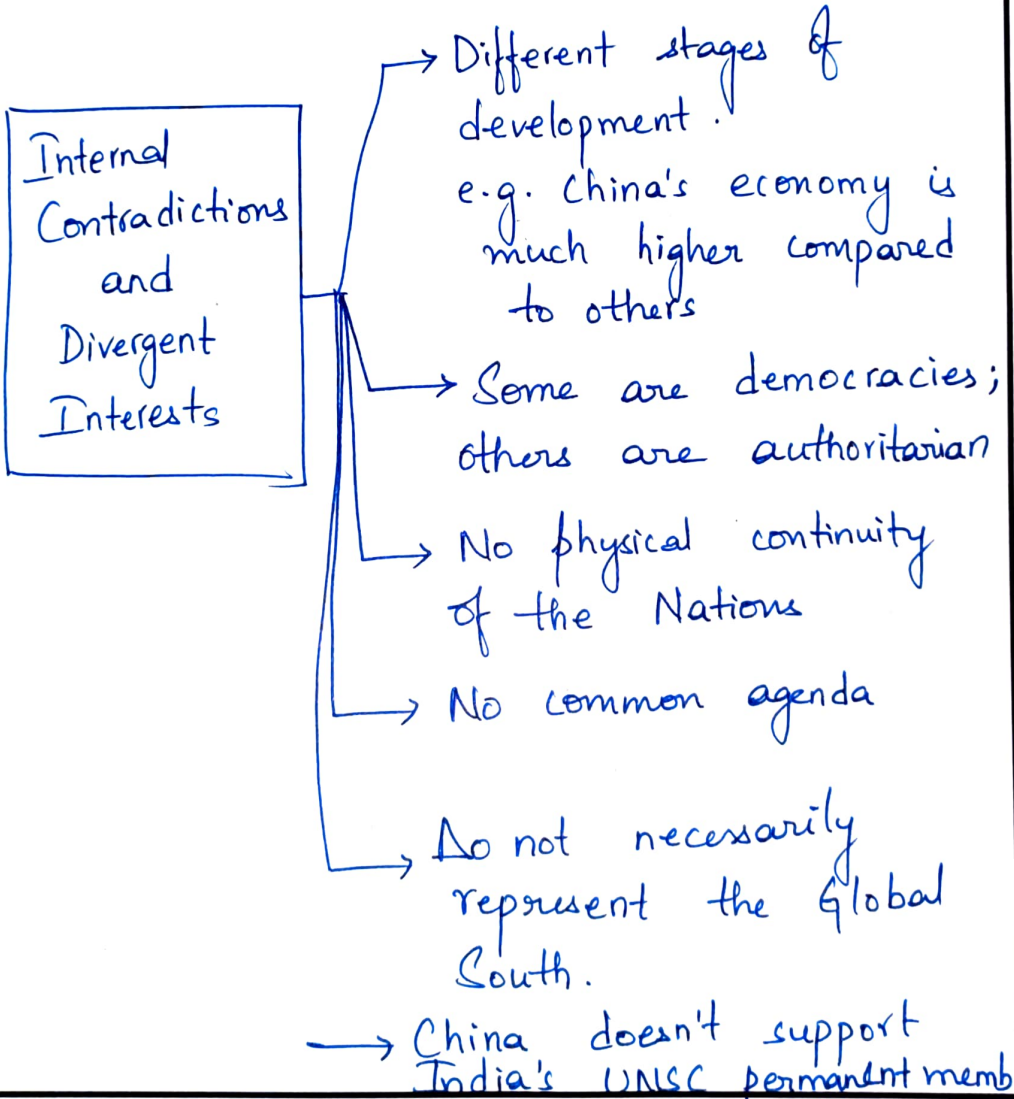 Internal
Contradictions
and
Divergent
Interests
Different stages of
development.
e.g. China's economy is
much higher compared
to others
Some are democracies;
others are authoritarian
No physical continuity
of the Nations
No common agenda
Do not necessarily
represent the Global
South.
China doesn't support
India's UNSC permanent memb